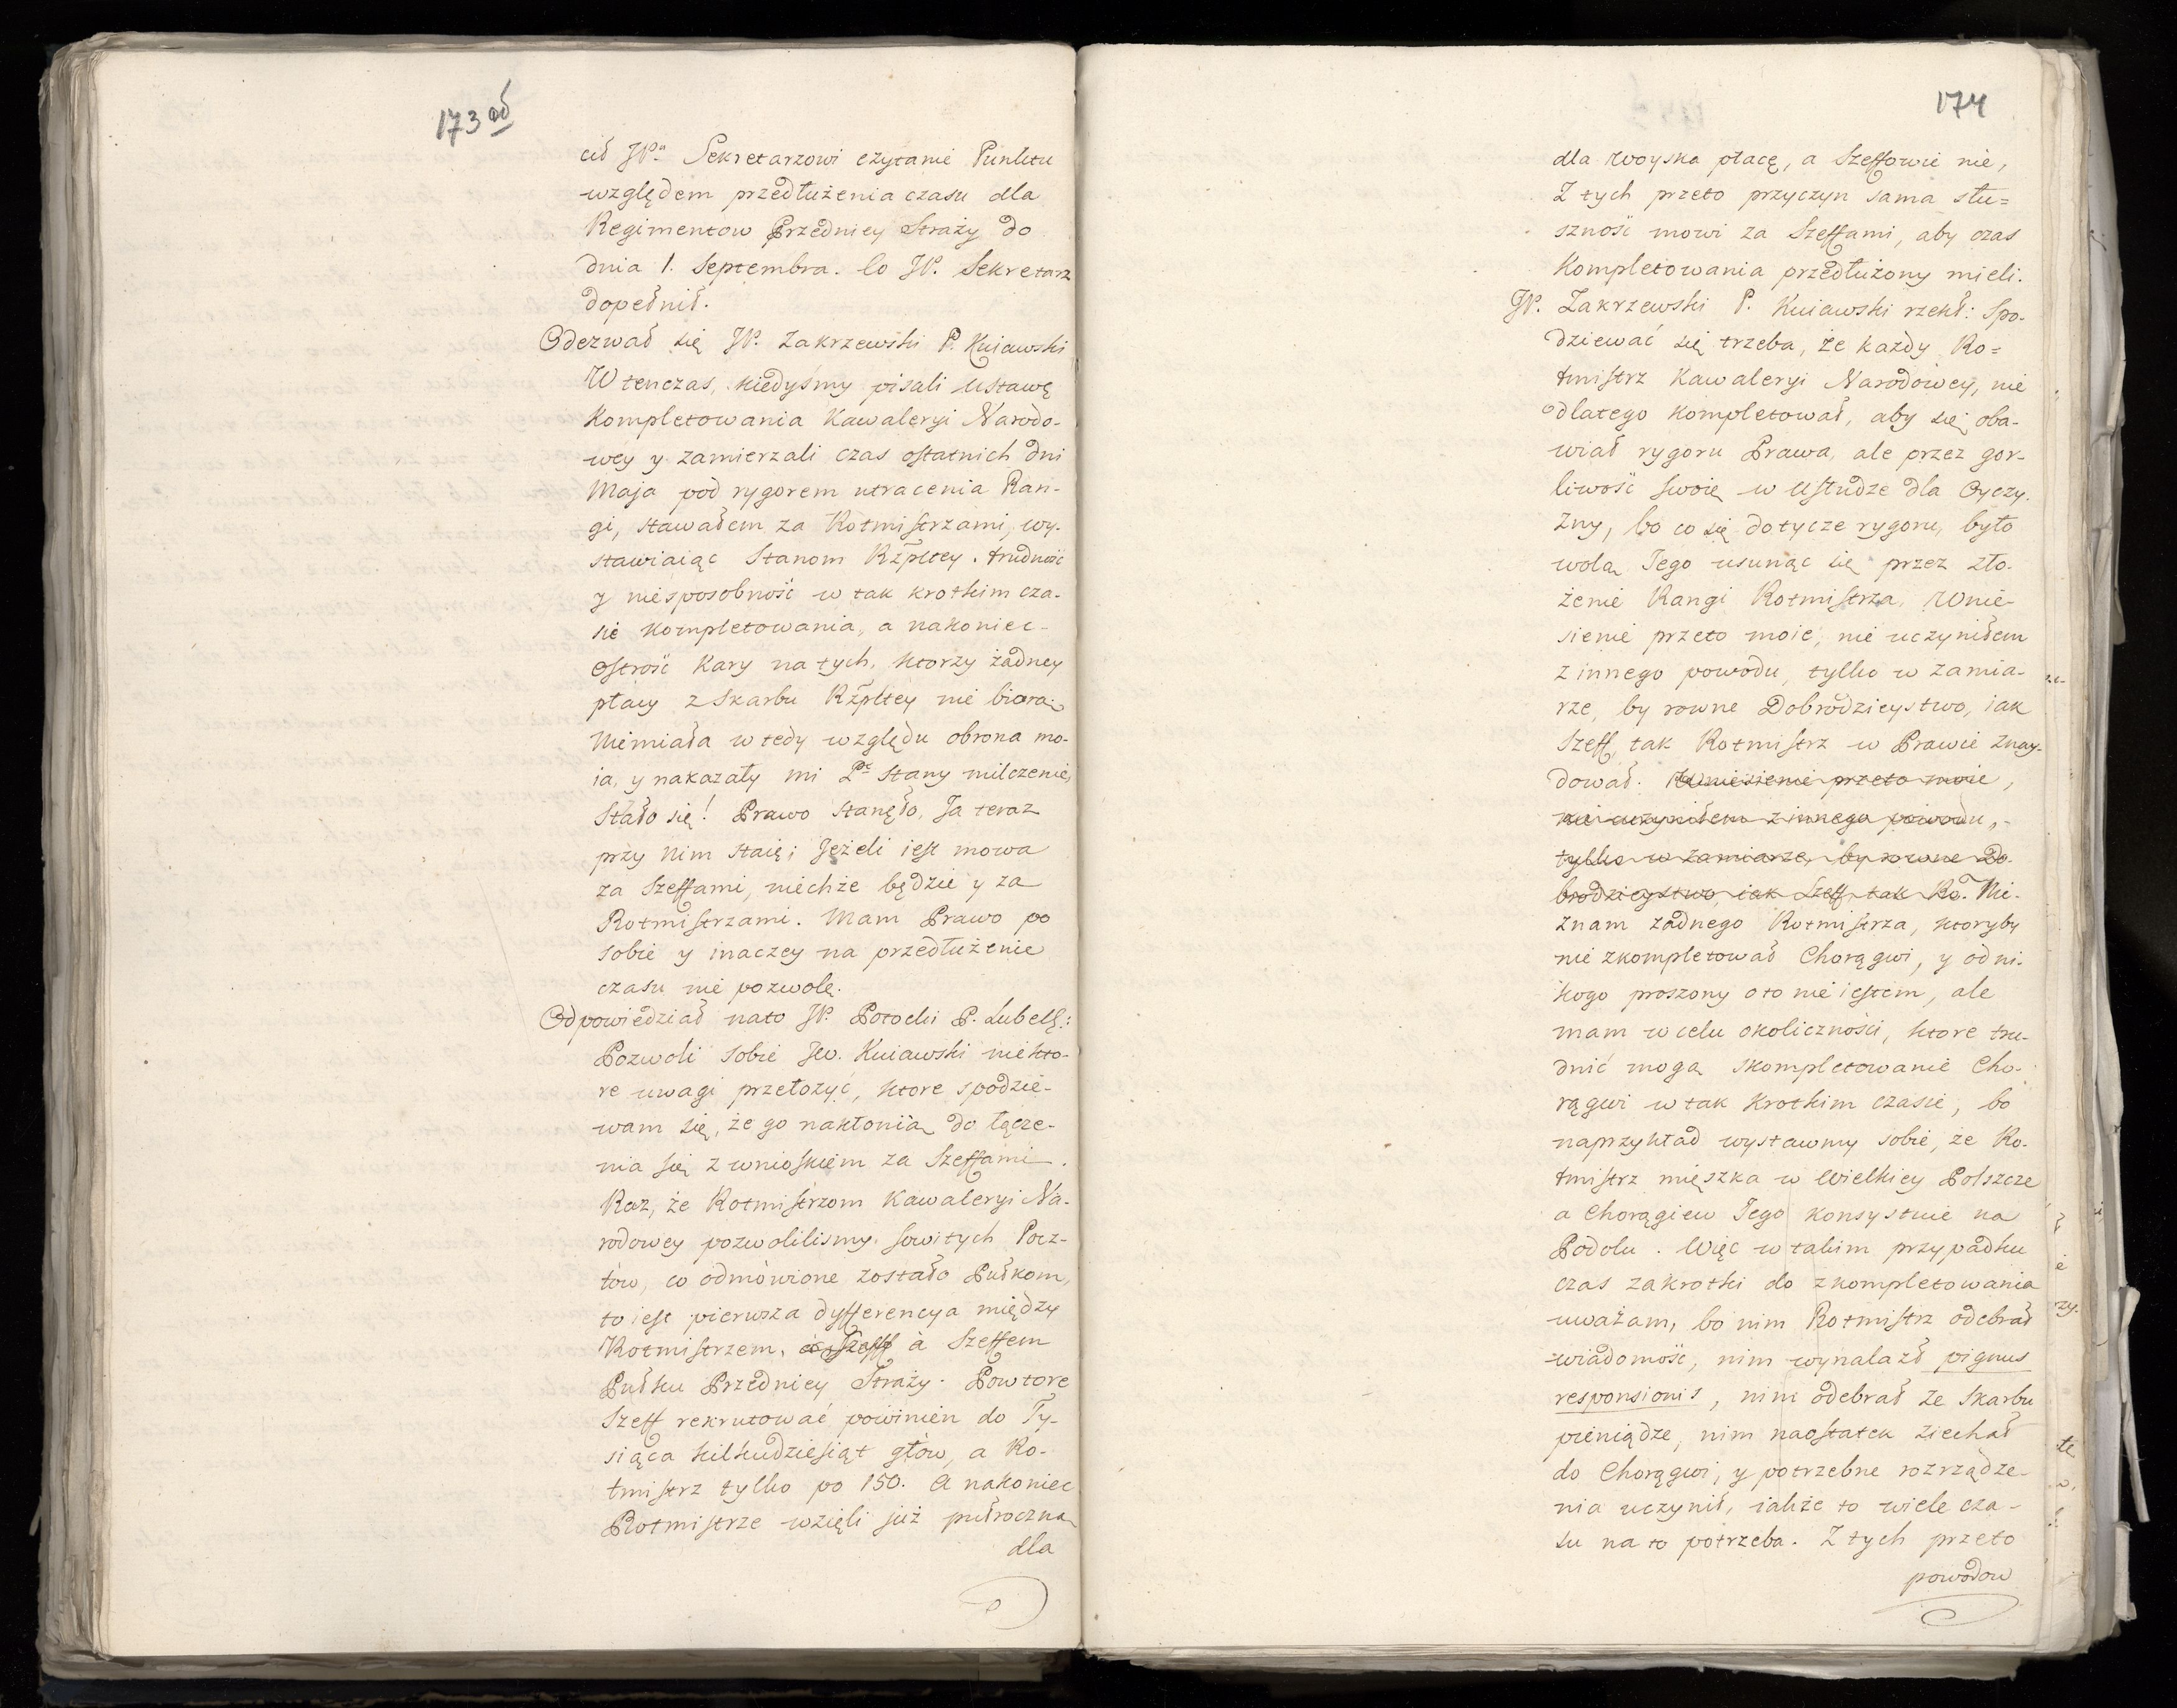 173 ab
cił JPu Sekretarzowi czytanie Punktu
względem przedłużenia czasu dla
Regimentow Przedniey Straży do
dnia 1. Septembra. Co JP. Sekretarz
dopełnił.
Odezwał się JP. Zakrzewski P. Kujawski
W tenczas, kiedysmy pisali Ustawę
Kompletowania Kawaleryi Narodo-
wey y zamierzali czas ostatnich dni
Maja pod rygorem utracenia Ran-
gi, stawałem za Rotmistrzami, wy-
stawiaiąc Stanom Rzpltey. trudność
y niesposobność w tak krotkim cza-
sie kompletowania, a nakoniec
Ostrość Kary na tych, ktorzy żadney
płacy z Skarbu Rzpltey nie biorą.
Niemiała wtedy względu obrona mo-
ia, y nakazały mi Pe Stany milczenie,
Stało się! Prawo stanęło, Ja teraz
przy nim staię; Jeżeli iest mowa
za Szeffami, niechże będzie y za
Rotmistrzami. Mam Prawo po
sobie y inaczey na przedłużenie
czasu nie pozwolę.
Odpowiedział nato JP. Potocki P. Lubels:
Pozwoli sobie Jw. Kuiawski niekto-
re uwagi przełożyć, ktore spodzie-
wam się, że go nakłonią do łącze-
nia się z wnioskiem za Szeffami.
Raz, że Rotmistrzom Kawaleryi Na-
rodowey pozwolilismy sowitych Pocz-
tów, co odmówione zostało Pułkom,
to iest pierwsza dyfferencya między
Rotmistrzem, a Szeff à Szeffem
Pułku Przedniey Straży. Powtore
Szeff rekrutować powinien do Ty-
siąca kilkudziesiąt głów, a Ro-
tmistrz tylko po 150. A nakoniec
Rotmistrze wzięli już pułroczną
dla
174
dla Woyska płacę, a Szeffowie nie,
Z tych przeto przyczyn sama słu=
szność mowi za Szeffami, aby czas
Kompletowania przedłużony mieli.
JP. Zakrzewski P. Kuiawski rzekł: Spo-
dziewać się trzeba, że każdy Ro=
tmistrz Kawaleryi Narodowey, nie
dlatego kompletował, aby się oba-
wiał rygoru Prawa, ale przez gor-
liwość swoię w Usłudze dla Oyczy-
zny, bo co się dotycze rygoru, było
wolą Jego usunąc się przez zło-
żenie Rangi Rotmistrza, Wnie-
sienie przeto moie, nie uczyniłem
z innego powodu, tylko w zamia-
rze, by rowne Dobrodzieystwo, iak
Szeff, tak Rotmistrz w Prawie znay-
dował. Wniesienie przeto moie,
nie uczyniłem z innego powodu,
tylko w zamiarze, by rowne Do-
brodzieystwo, iak Szeff, tak Ro. Nie-
znam żadnego Rotmistrza, ktoryby
nie zkompletował Chorągwi, y od ni-
kogo proszony oto nie iestem, ale
mam w celu okoliczności, ktore tru-
dnić mogą skompletowanie Cho-
rągwi w tak krotkim czasie, bo
naprzykład wystawmy sobie, że Ro-
tmistrz mięszka w Wielkiey Polszcze
a Chorągiew Jego konsystuie na
Podolu. Więc w takim przypadku
czas zakrotki do zkompletowania
uważam, bo nim Rotmistrz odebrał
wiadomość, nim wynalazł pignus
responsionis, nim odebrał ze Skarbu
pieniądze, nim naostatek ziechał
do Chorągwi, y potrzebne rozrządze-
nia uczynił, iakże to wiele cza-
su na to potrzeba. Z tych przeto
powodow